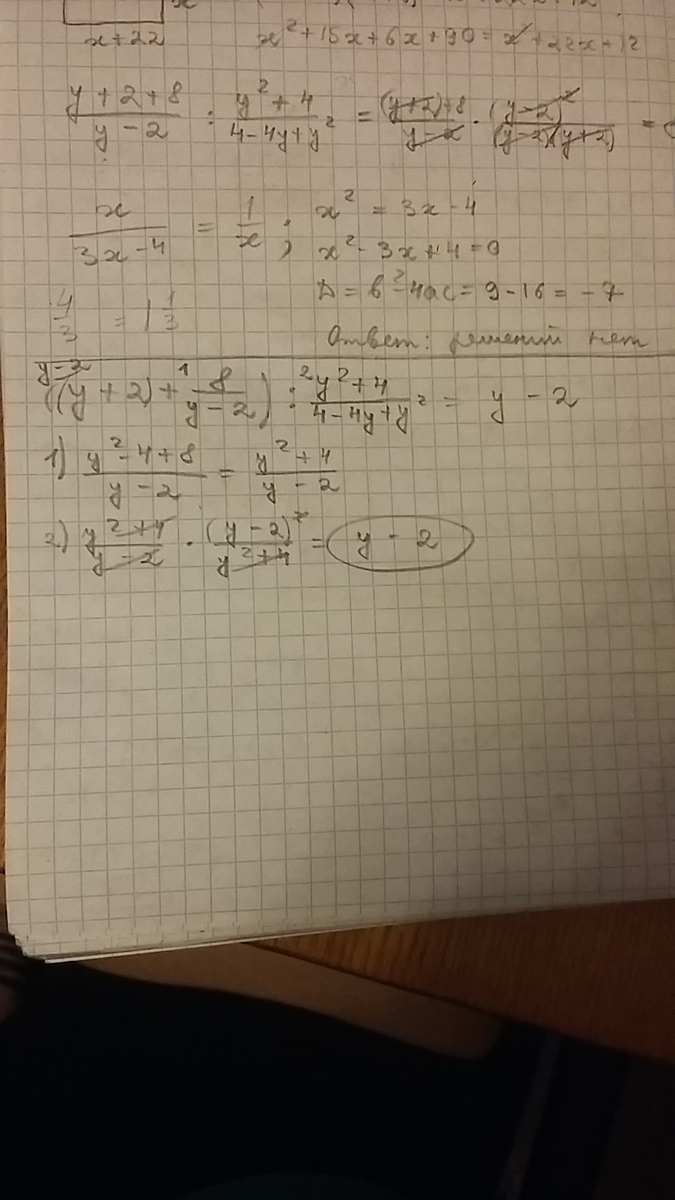 x
x+22
x² + 15x + 6x + 90 = x² + 22x + 12
(y + 2 + 8)/(y - 2) : (y² + 4)/(4 - 4y + y²) = ((y+2)+8)/(y - 2) · (y - 2)²/((y-2)(y+2)) =
x/(3x - 4) = 1/x ; x² = 3x - 4
x² - 3x + 4 = 0
D = b² - 4ac = 9 - 16 = -7
4/3 = 1 1/3
Ответ: решений нет
y-2
((y + 2) + ¹ 8/(y - 2)) :² (y² + 4)/(4 - 4y + y²) = y - 2
1) (y² - 4 + 8)/(y - 2) = (y² + 4)/(y - 2)
2) (y² + 4)/(y - 2) · (y - 2)²/(y² + 4) = y - 2